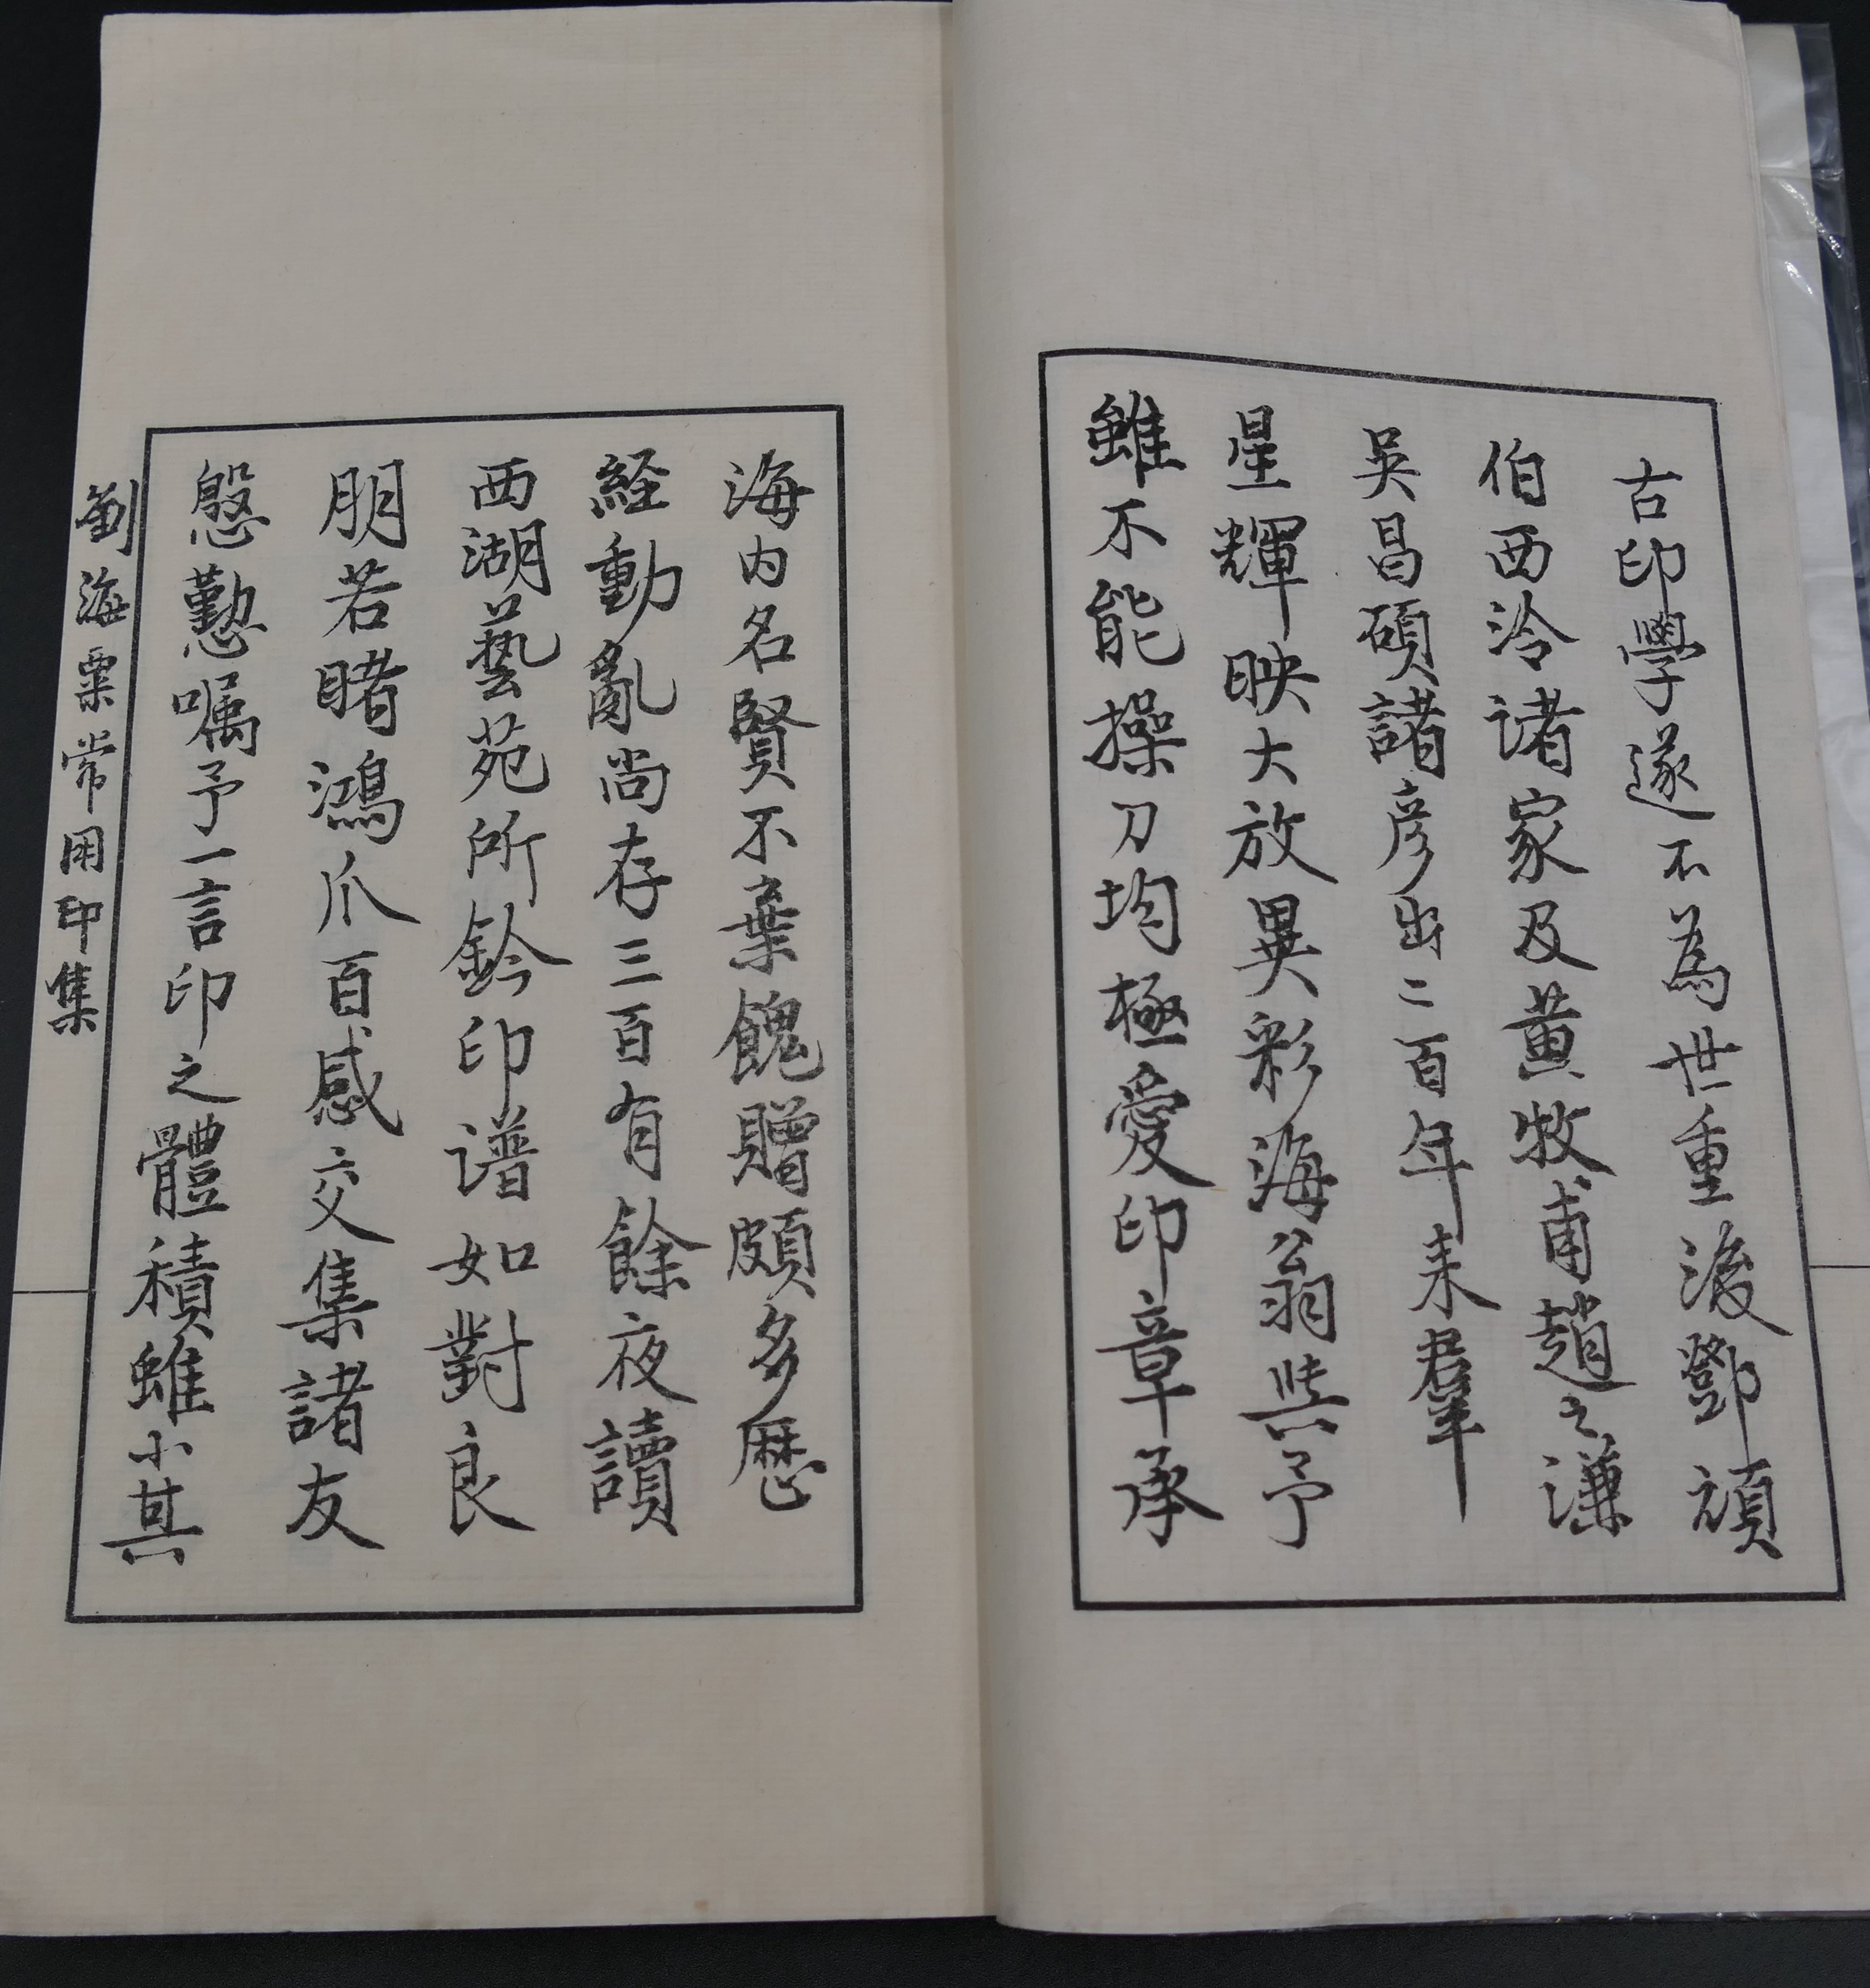 古印學遂不為世重後鄧頑
伯西泠诸家及黃牧甫趙之谦
吳昌碩諸彥出二百年来羣
星輝映大放異彩海翁與予
雖不能操刀均極愛印章承
海内名賢不棄餽贈頗多歴
経動亂尚存三百有餘夜讀
西湖藝苑所鈐印谱如對良
朋若睹鴻爪百感交集諸友
慇懃嘱予一言印之體積雖小其
劉海粟常用印集